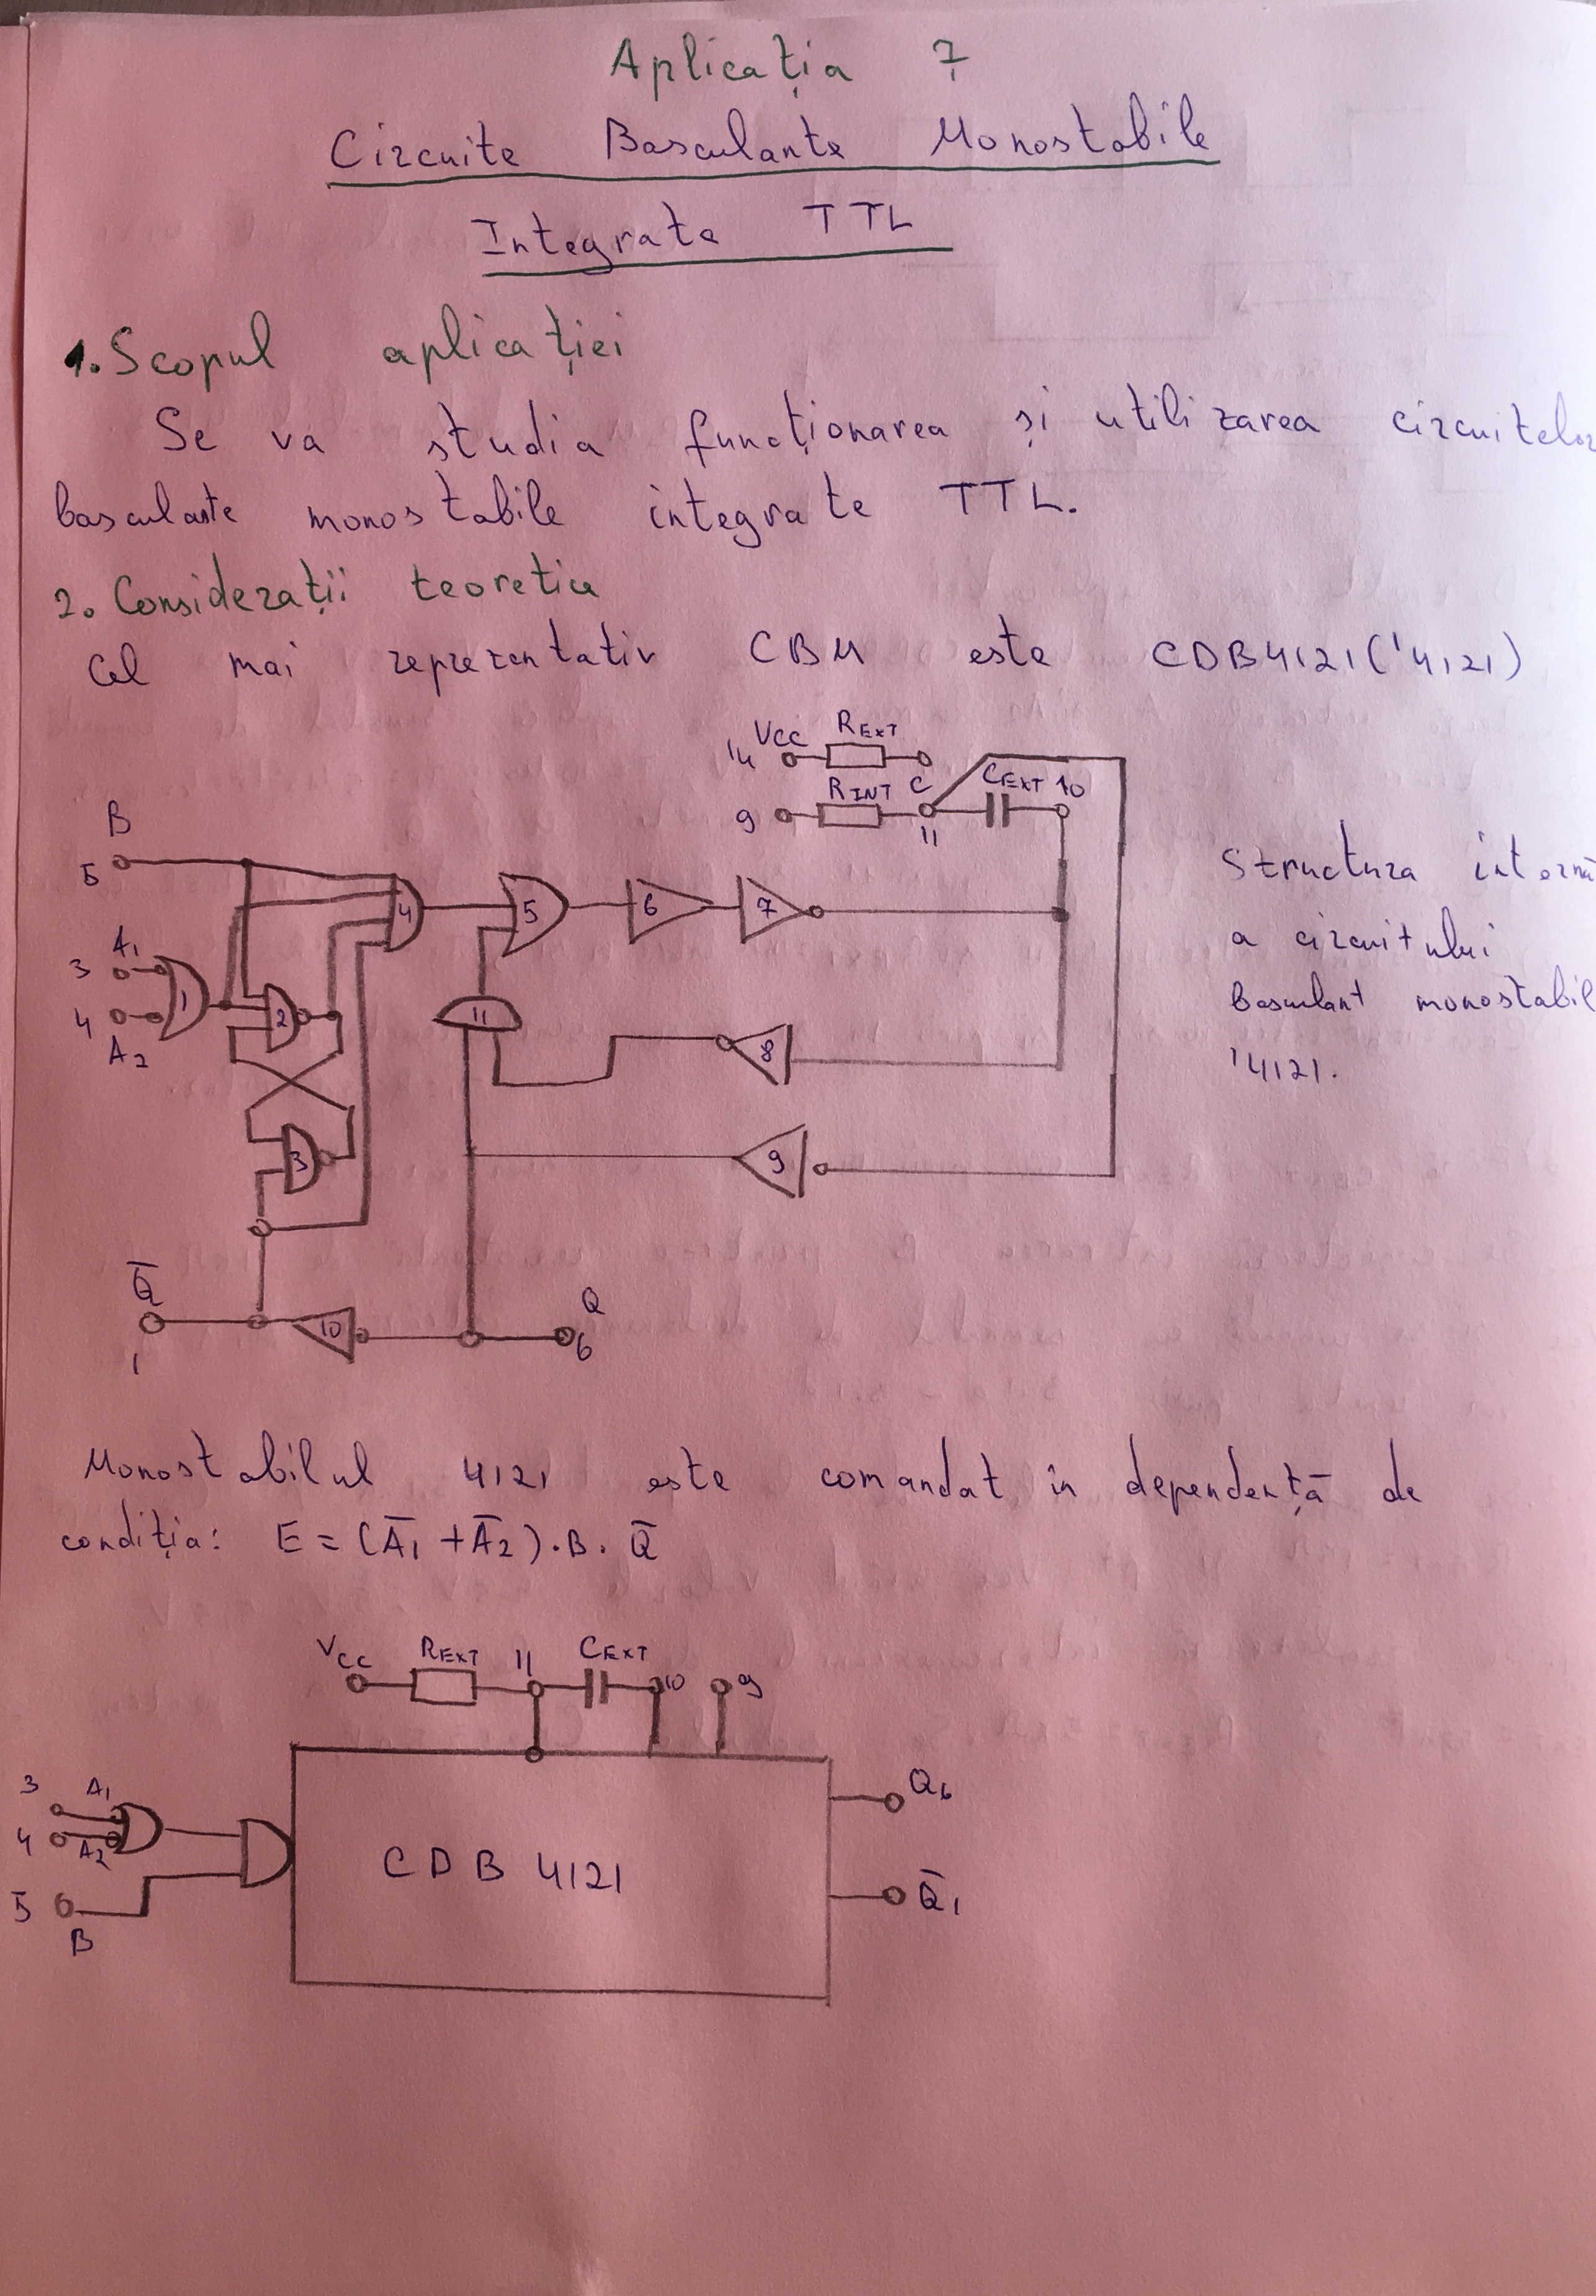 Aplicația 7
Circuite Basculante Monostabile
Integrate TTL
1. Scopul aplicației
Se va studia funcționarea și utilizarea circuitelor
basculante monostabile integrate TTL.
2. Considerații teoretice
Cel mai reprezentativ CBM este CDB4121('4121)
14 VCC REXT
9 RINT C CEXT 10
11
B
5
A1
3
4
A2
1
2
3
4
5
6
7
11
8
9
Structura internă
a circuitului
basculant monostabil
'4121.
Q̅
1
10
Q
6
Monostabilul 4121 este comandat în dependență de
condiția: E = (A̅1 + A̅2).B. Q̅
VCC REXT 11 CEXT 10 9
3 A1
4 A2
5
B
CDB 4121
Q6
Q̅1